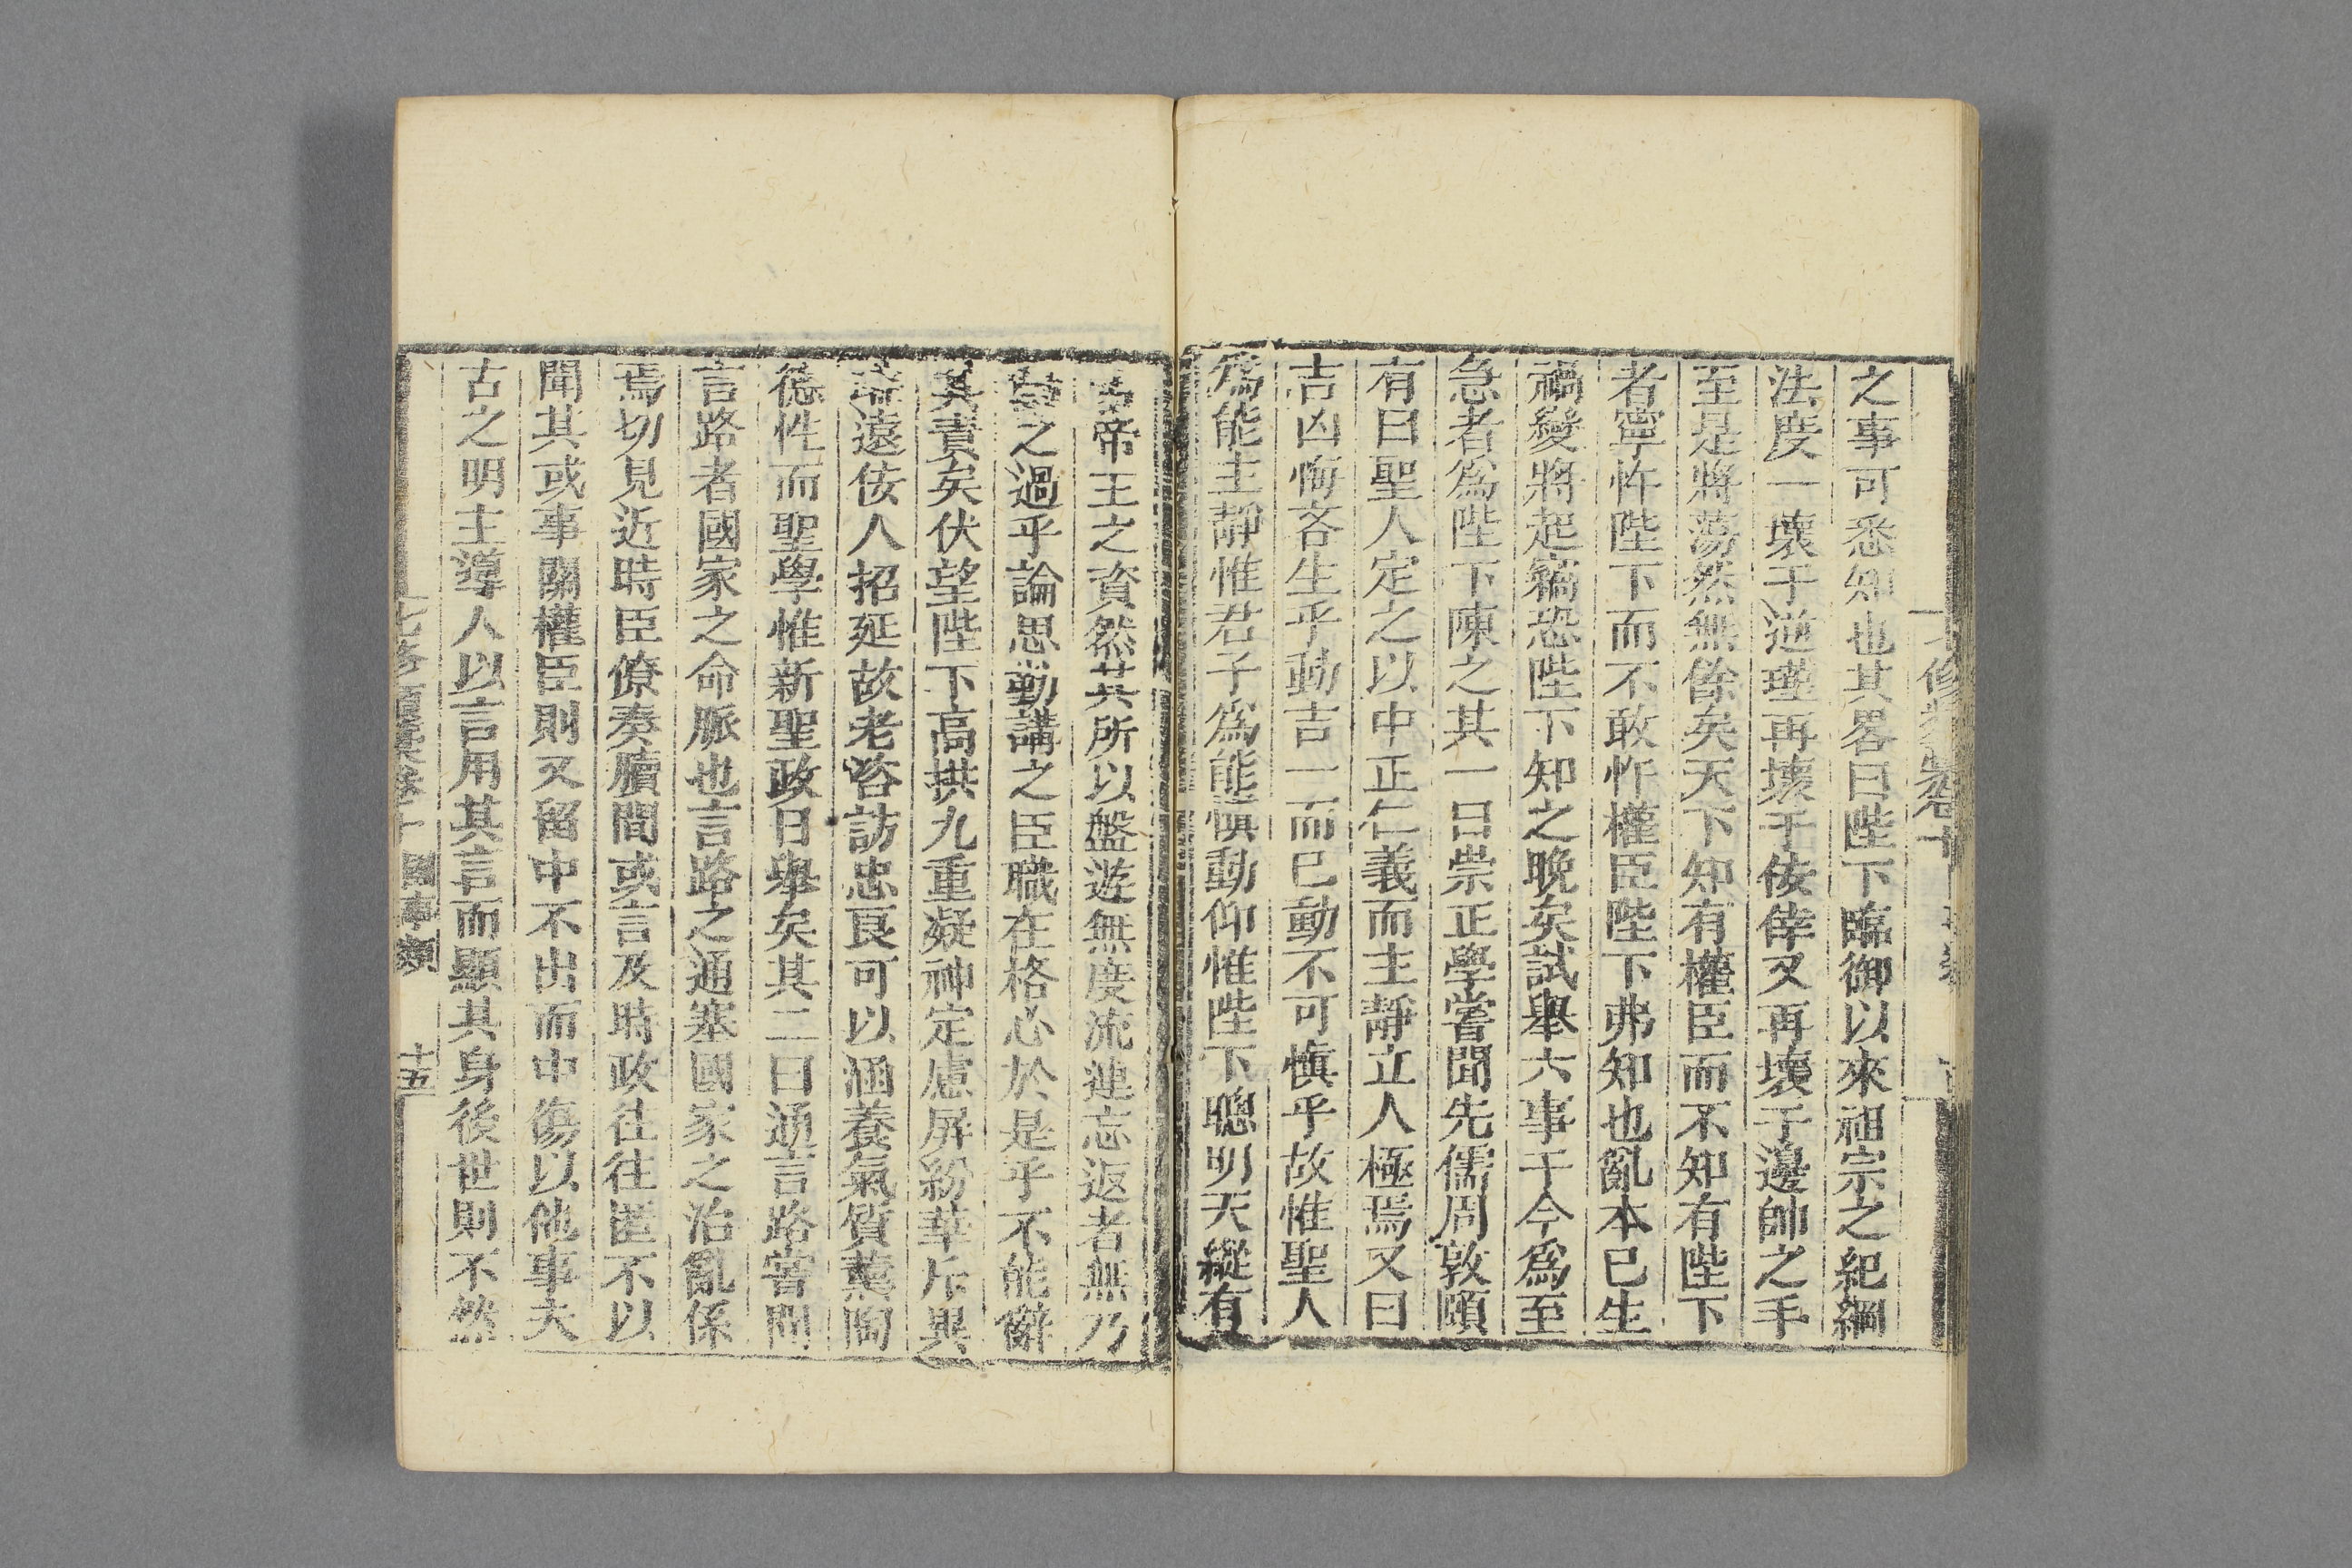 之事可悉知也其畧曰陛下臨御以來祖宗之紀綱
法度一壞于逆瑾再壞于佞倖又再壞于邊帥之手
至是將蕩然無餘矣天下知有權臣而不知有陛下
者寧忤陛下而不敢忤權臣陛下弗知也亂本已生
禍變將起竊恐陛下知之晚矣試舉六事于今爲至
急者爲陛下陳之其一曰崇正學嘗聞先儒周敦頤
有曰聖人定之以中正仁義而主靜立人極焉又曰
吉凶悔吝生乎動吉一而已動不可愼乎故惟聖人
爲能主靜惟君子爲能愼動仰惟陛下聰明天縱有
帝王之資然其所以盤遊無度流連忘返者無乃
之過乎論思勸講之臣職在格心於是乎不能辭
其責矣伏望陛下高拱九重凝神定慮屏紛華斥異
端遠佞人招延故老咨訪忠良可以涵養氣質薰陶
德性而聖學惟新聖政日舉矣其二曰通言路嘗聞
言路者國家之命脈也言路之通塞國家之治亂係
焉切見近時臣僚奏牘間或言及時政往往匿不以
聞其或事關權臣則又留中不出而中傷以他事夫
古之明主導人以言用其言而顯其身後世則不然
七修類藁卷十 國事類 十五